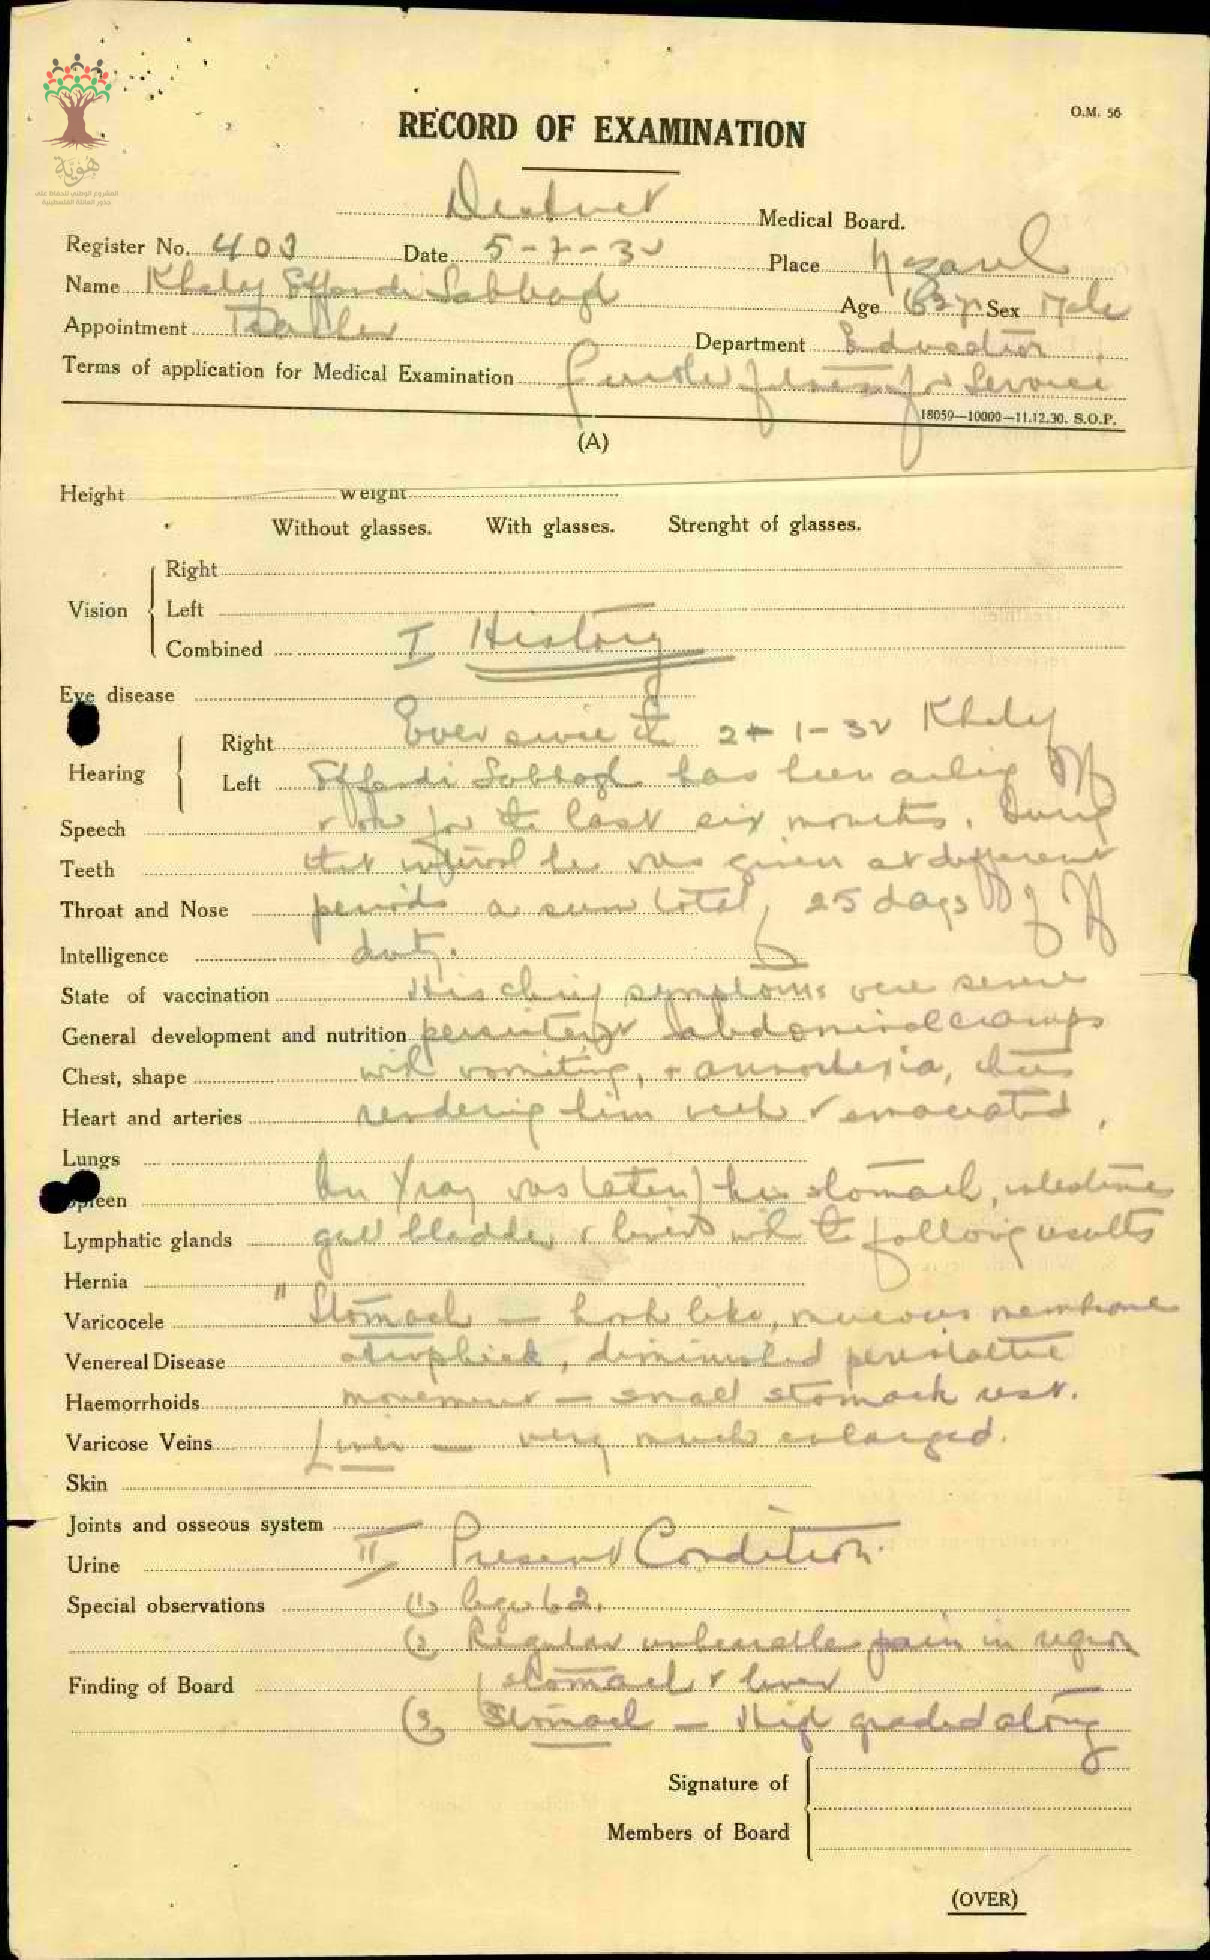 هوية
المشروع الوطني للحفاظ على
جذور العائلة الفلسطينية
O.M. 56
RECORD OF EXAMINATION
District Medical Board.
Register No. 403 Date 5-7-32 Place Nazareth
Name Khaly Effendi Sabbagh Age 62 yr Sex Male
Appointment Teacher Department Education
Terms of application for Medical Examination fitness for Service
18059—10000—11.12.30. S.O.P.
(A)
Height Weight
Without glasses. With glasses. Strenght of glasses.
Right
Vision Left
Combined
I History
Eye disease
Ever since the 2+ 1-32 Khaly
Right
Hearing
Left Effendi Sabbagh has been ailing off
Speech & on for the last six months. During
Teeth that interval he was given at different
Throat and Nose periods a sum total, 25 days off
Intelligence duty.
State of vaccination His chief symptoms were severe
General development and nutrition persistent abdominal cramps
Chest, shape with vomiting, + annorhexia, thus
Heart and arteries rendering him weak & emaciated,
Lungs
Spleen An Xray was taken his stomach, intestines
Lymphatic glands gall bladder & liver with the following results
Hernia
Varicocele "Stomach — hook like, mucous membrane
Venereal Disease atrophied, diminished peristaltic
Haemorrhoids movement — small stomach rest.
Varicose Veins Liver — very much enlarged.
Skin
Joints and osseous system
Urine II Present Condition.
Special observations (1) Age 62.
(2) Regular unbearable pain in region
Finding of Board stomach & liver
(3) Stomach — graded along
Signature of
Members of Board
(OVER)